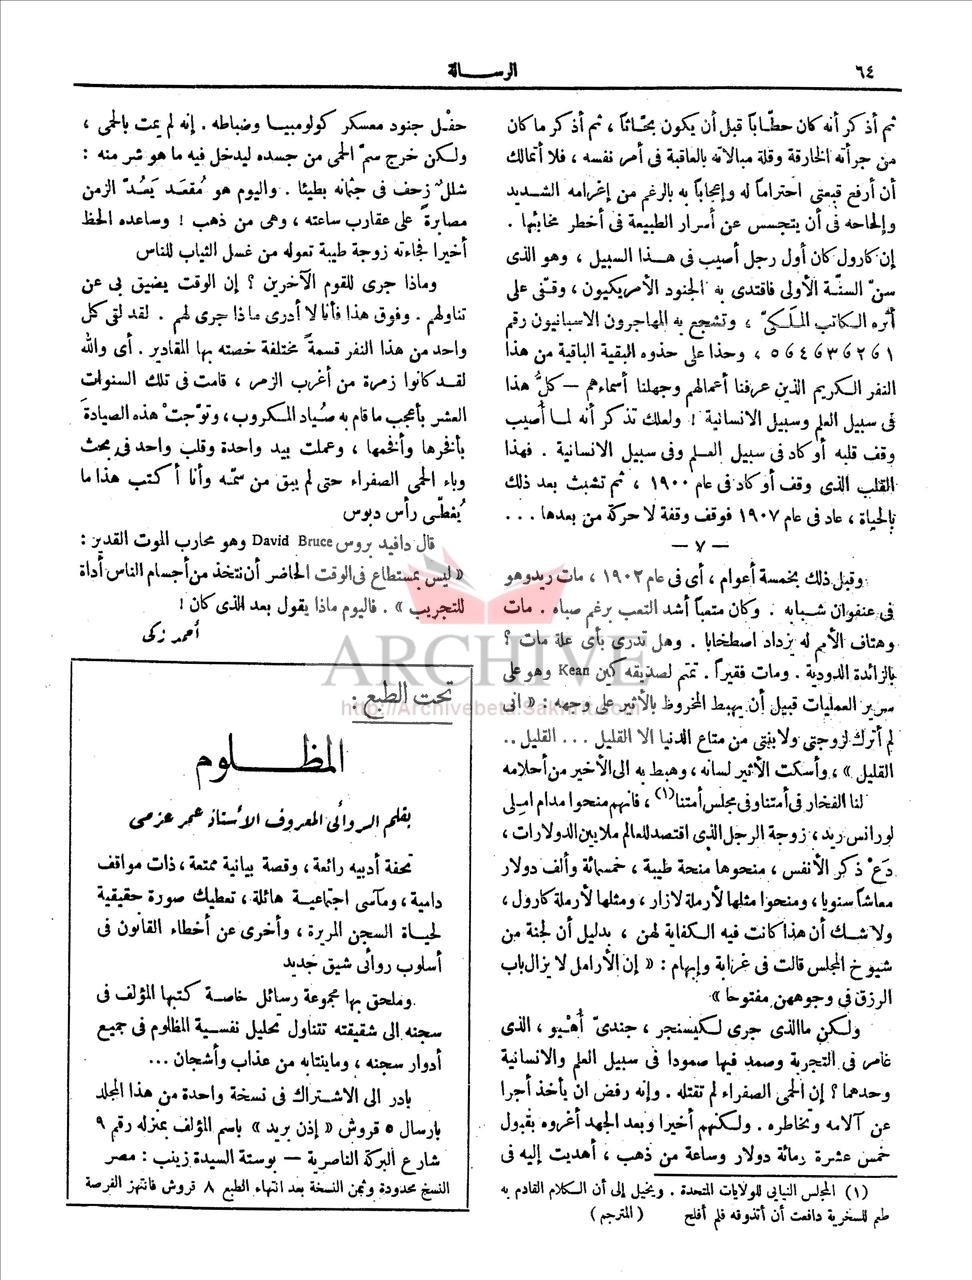 ٦٤
الرسالة
ثم أذكر أنه كان حطّاباً قبل أن يكون بحّاثاً ، ثم أذكر ما كان
من جرأته الخارقة وقلة مبالاته بالعاقبة فى أمر نفسه ، فلا أتمالك
أن أرفع قبعتى احتراماً له وإعجاباً به بالرغم من إغرامه الشديد
وإلحاحه فى أن يتجسس عن أسرار الطبيعة فى أخطر مخائبها .
إن كارول كان أول رجل أصيب فى هذا السبيل ، وهو الذى
سنّ السنّة الأولى فاقتدى به الجنود الأمريكيون ، وقفّى على
أثره الكاتب الملَكىّ ، وتشجع به المهاجرون الاسبانيون رقم
١ و ٢ و ٣ و ٤ و ٥ ، وحذا على حذوه البقية الباقية من هذا
النفر الكريم الذين عرفنا أعمالهم وجهلنا أسماءهم — كلُّ هذا
فى سبيل العلم وسبيل الانسانية ! ولعلك تذكر أنه لما أصيب
وقف قلبه أو كاد فى سبيل العلم وفى سبيل الانسانية . فهذا
القلب الذى وقف أو كاد فى عام ١٩٠٠ ، ثم تشبث بعد ذلك
بالحياة ، عاد فى عام ١٩٠٧ فوقف وقفة لا حركة من بعدها . . .
— ٧ —
وقبل ذلك بخمسة أعوام ، أى فى عام ١٩٠٢ ، مات ريد وهو
فى عنفوان شبابه . وكان متعباً أشد التعب برغم صباه . مات
وهتاف الأمم له يزداد اصطخابا . وهل تدرى بأى علة مات ؟
بالزائدة الدودية . ومات فقيراً . تمتم لصديقه كين Kean وهو على
سرير العمليات قبيل أن يهبط المخروط بالأثير على وجهه : « انى
لم أترك لزوجتى ولابنتى من متاع الدنيا الا القليل ... القليل ..
القليل » ، وأسكت الأثير لسانه ، وهبط به الى الأخير من أحلامه
لنا الفخار فى أمتنا وفى مجلس أمتنا (١) ، فانهم منحوا مدام امِلى
لورانس ريد ، زوجة الرجل الذى اقتصد للعالم ملايين الدولارات ،
دَعْ ذكر الأنفس ، منحوها منحة طيبة ، خمسمائة وألف دولار
معاشاً سنويا ، ومنحوا مثلها لأرملة لازار ، ومثلها لأرملة كارول ،
ولا شك أن هذا كانت فيه الكفاية لهن ، بدليل أن لجنة من
شيوخ المجلس قالت فى غرابة وإبهام : « إن الأرامل لا يزال باب
الرزق فى وجوههن مفتوحا »
ولكن ما الذى جرى لكيسنجر ، جندىّ أُهَيو ، الذى
غامر فى التجربة وصمد فيها صمودا فى سبيل العلم والانسانية
وحدهما ؟ إن الحمى الصفراء لم تقتله . وإنه رفض ان يأخذ أجرا
عن آلامه ومخاطره . ولكنهم أخيرا وبعد الجهد أغروه بقبول
خمس عشرة رمائة دولار وساعة من ذهب ، أهديت إليه فى
(١) المجلس النيابى للولايات المتحدة . ويخيل إلى أن الكلام القادم به
طعم للسخرية دافعت أن أتذوقه فلم أفلح ( المترجم )
حفْل جنود معسكر كولومبيا وضباطه . إنه لم يمت بالحمى ،
ولكن خرج سمّ الحمى من جسده ليدخل فيه ما هو شر منه :
شلل زحف فى جثمانه بطيئا . واليوم هو مُقعَد يَعُدّ الزمن
مصابرةً على عقارب ساعته ، وهى من ذهب ! وساعده الحظ
أخيرا فجاءته زوجة طيبة تعوله من غسل الثياب للناس
وماذا جرى للقوم الآخرين ؟ إن الوقت يضيق بى عن
تناولهم . وفوق هذا فأنا لا أدرى ماذا جرى لهم . لقد لقى كل
واحد من هذا النفر قسمةً مختلفة خصته بها المقادير . أى والله
لقد كانوا زمرة من أغرب الزمر ، قامت فى تلك السنوات
العشر بأعجب ما قام به صُياد المكروب ، وتوّجتْ هذه الصيادةَ
بأنفرها وأفخمها ، وعملت بيد واحدة وقلب واحد فى بحث
وباء الحمى الصفراء حتى لم يبق من سمّه وأنا أكتب هذا ما
يُغطّى رأس دبوس
قال دافيد بروس David Bruce وهو محارب الموت القدير :
« ليس بمستطاع فى الوقت الحاضر أن نتخذ من أجسام الناس أداة
للتجريب » . فاليوم ماذا يقول بعد الذى كان !
أحمد زكى
ARCHIVE
http://Archivebeta.Sakhrit.com
تحت الطبع :
المظلوم
بقلم الروائى المعروف الأستاذ عمر عزمى
تحفة أدبيه رائعة ، وقصة بيانية ممتعة ، ذات مواقف
دامية ، ومآسى اجتماعية هائلة ، تعطيك صورة حقيقية
لحياة السجن المريرة ، وأخرى عن أخطاء القانون فى
أسلوب روائى شيق جديد
وملحق بها مجموعة رسائل خاصة كتبها المؤلف فى
سجنه الى شقيقته تتناول تحليل نفسية المظلوم فى جميع
أدوار سجنه ، وما ينتابه من عذاب وأشجان ...
بادر الى الاشتراك فى نسخة واحدة من هذا المجلد
بارسال ٥ قروش « إذن بريد » باسم المؤلف بمنزله رقم ٩
شارع البركة الناصرية — بوستة السيدة زينب : مصر
النسخ محدودة وثمن النسخة بعد انتهاء الطبع ٨ قروش فانتهز الفرصة